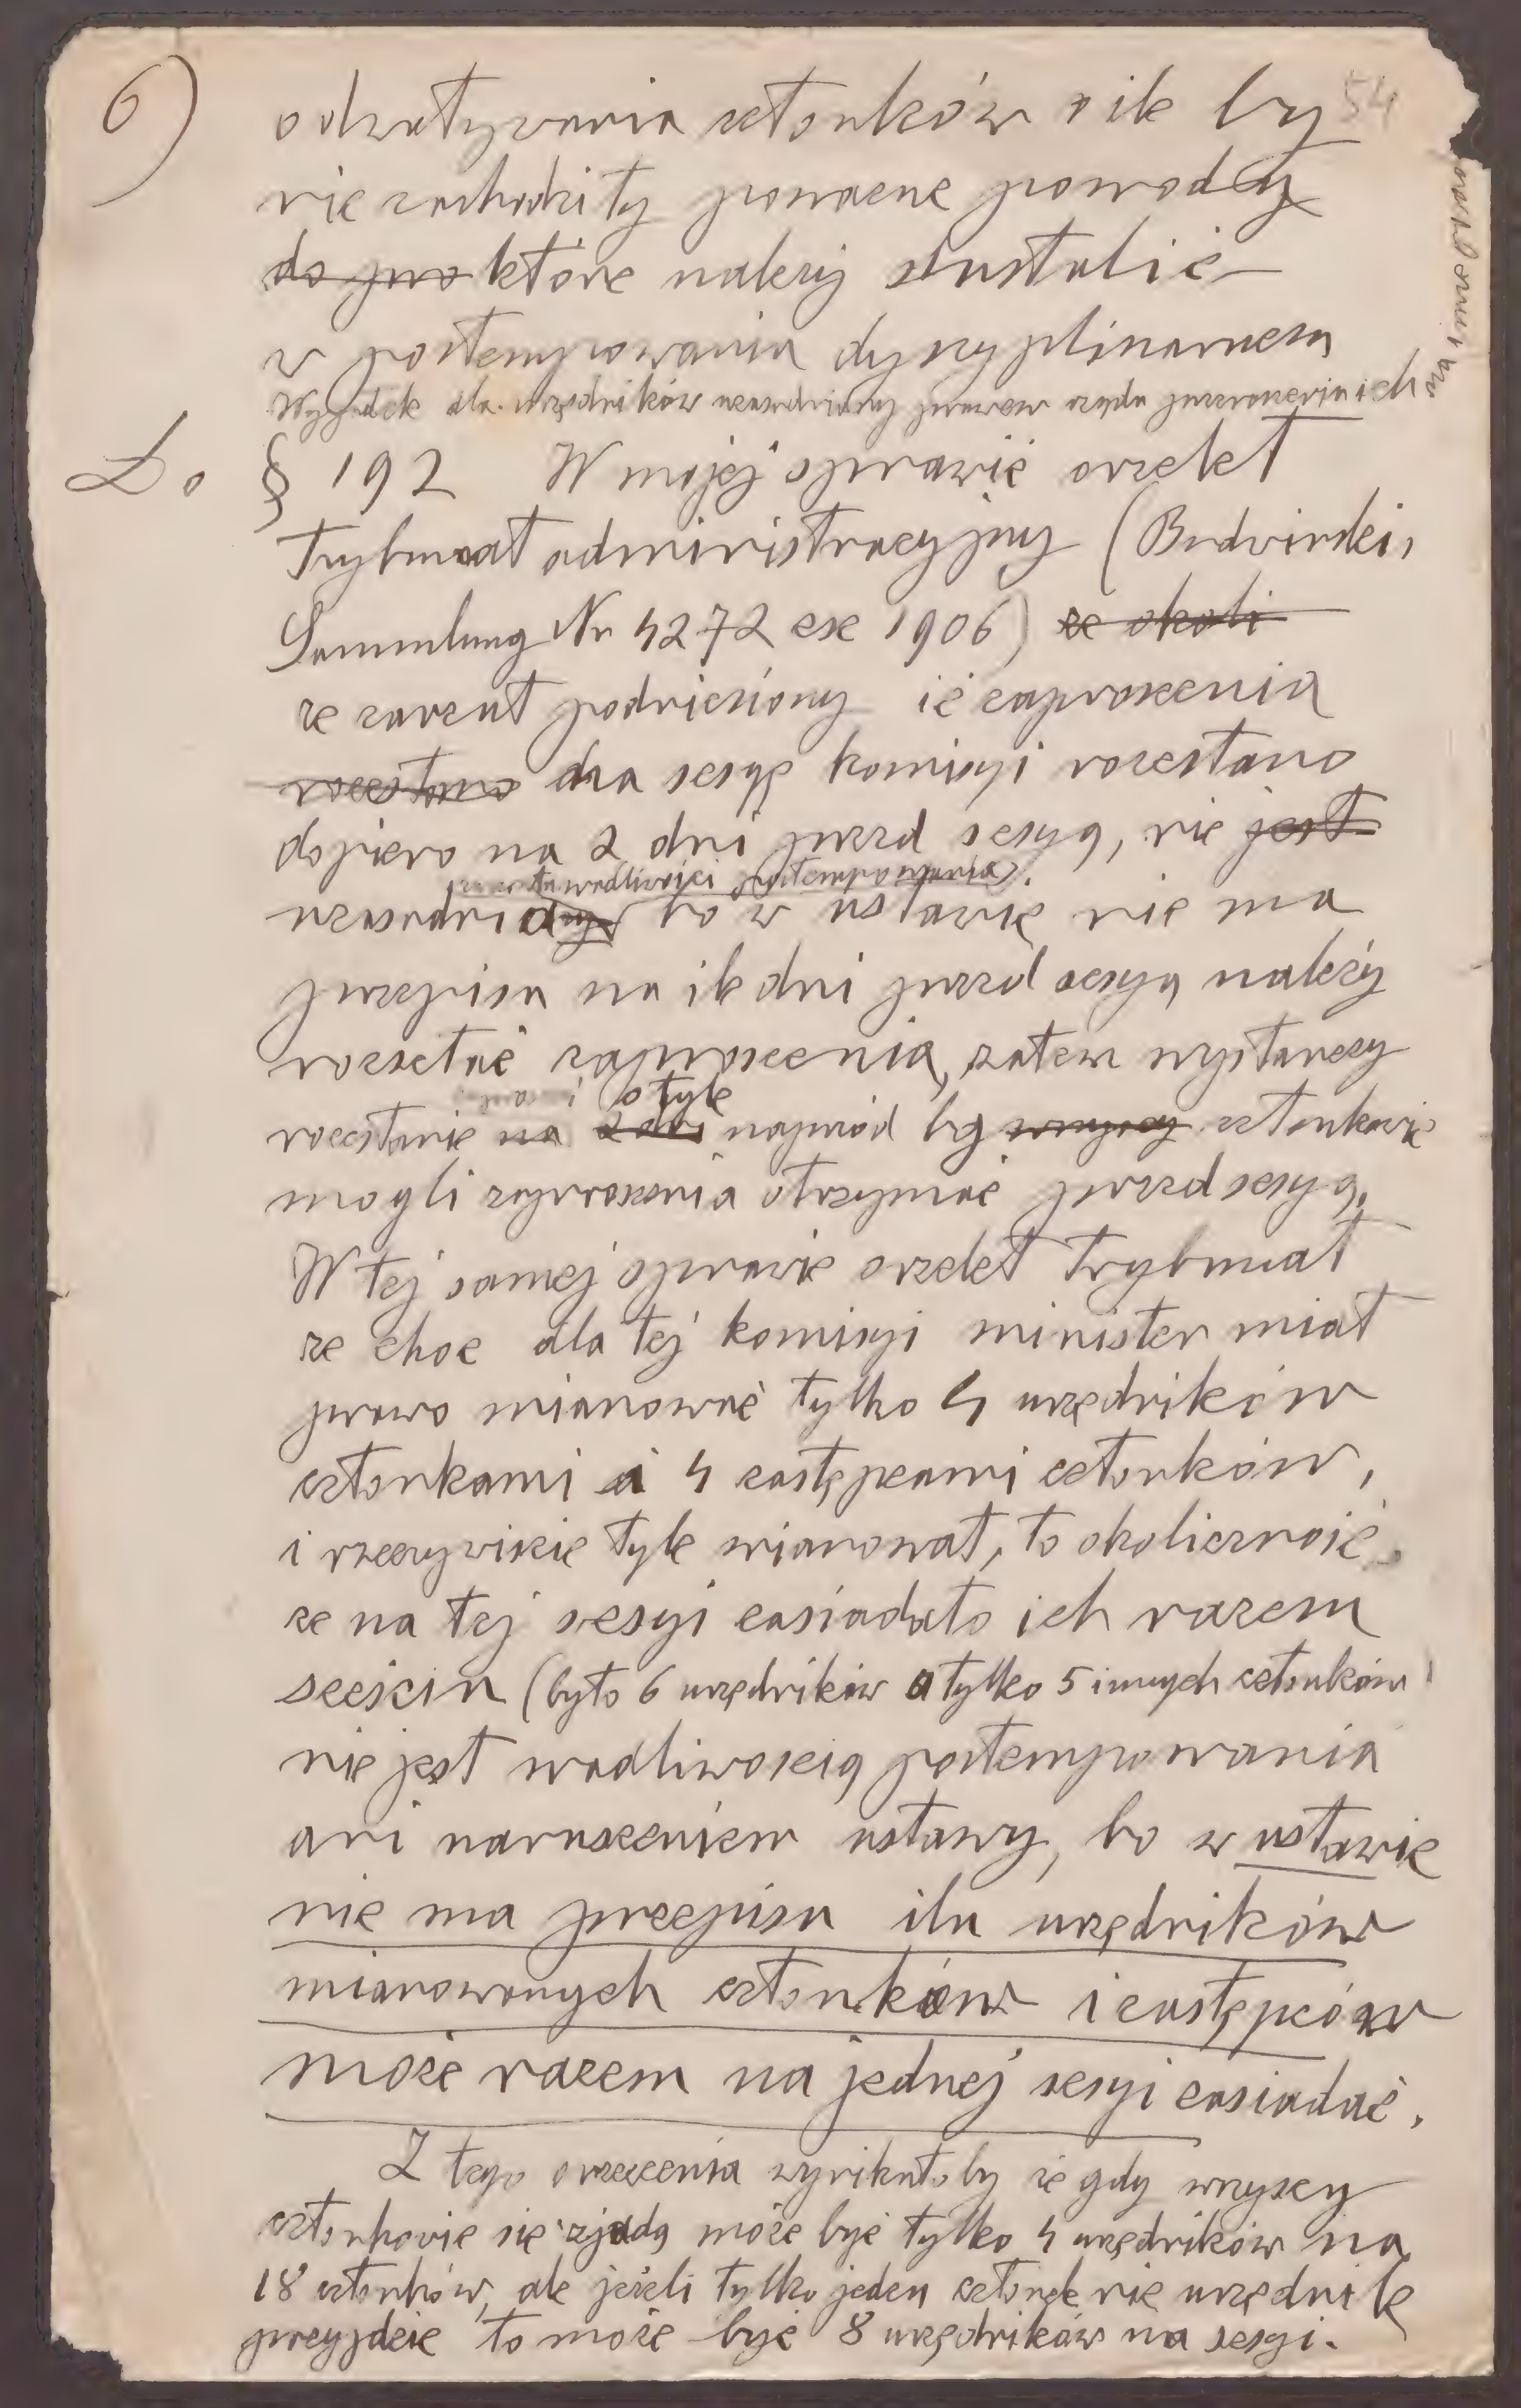 6)
54
odwoływania członków o ile by
nie zachodziły poważne powody
do pro które należy ustalić
w postempowaniu dyscyplinarnem
Wyjątek dla urzędników uzasadniony prawem rządu przenoszenia ich
Do § 192 W mojej sprawie orzekł
Trybunał administracyjny (Budwiński,
Sammlung Nr 4272 ex 1906) ze okoli
ze zarzut podniesiony iż zaproszenia
rozesłano dna sesyę komisyi rozesłano
dopiero na 2 dni przed sesyą, nie jest
wadliwości postempowania
uzasadnia bo w ustawie nie ma
przepisu na ile dni przed sesyą należy
rozsełać zaproszenia, zatem wystarczy
o tyle
rozesłanie na 2 dni naprzód by wszyscy członkowie
mogli zaproszenia otrzymać przed sesyą.
W tej samej sprawie orzekł Trybunał
ze choć dla tej komisyi minister miał
prawo mianować tylko 4 urzędników
członkami a 4 zastępcami członków,
i rzeczywiście tyle mianował, to okoliczność
ze na tej sesyi zasiadało ich razem
sześciu (było 6 urzędników a tylko 5 innych członków)
nie jest wadliwością postempowania
ani naruszeniem ustawy, bo w ustawie
nie ma przepisu ilu urzędników
mianowanych członków i zastępców
może razem na jednej sesyi zasiadać.
Z tego orzeczenia wynikałoby że gdy wszyscy
członkowie się zjadą może być tylko 4 urzędników na
18 członków, ale jeżeli tylko jeden członek nie urzędnik
przyjdzie to może być 8 urzędników na sesyi.